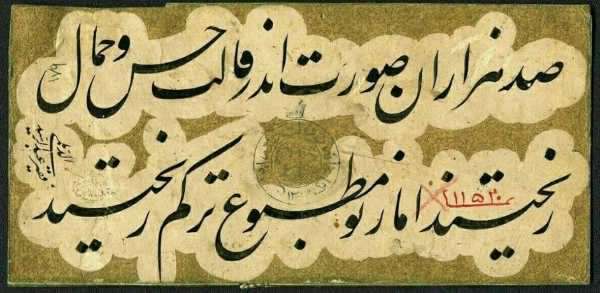 صد هزاران صورت اندر قالب حسن و جمال
ریختند اما ز تو مطبوع ترکم ریختند